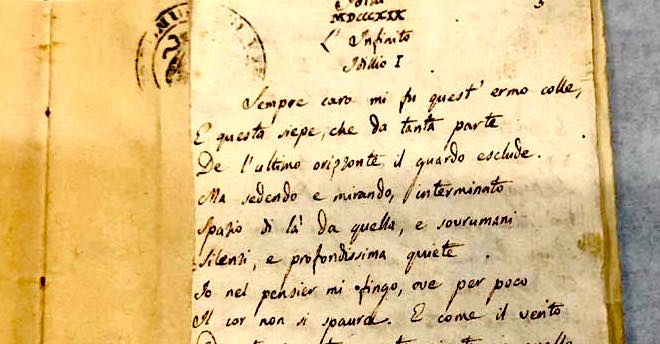 MDCCCXIX
L'Infinito
Idillio I
Sempre caro mi fu quest' ermo colle,
E questa siepe, che da tanta parte
De l'ultimo orizzonte il guardo esclude.
Ma sedendo e mirando, interminato
Spazio di là da quella, e sovrumani
Silenzi, e profondissima quiete
Io nel pensier mi fingo, ove per poco
Il cor non si spaura. E come il vento